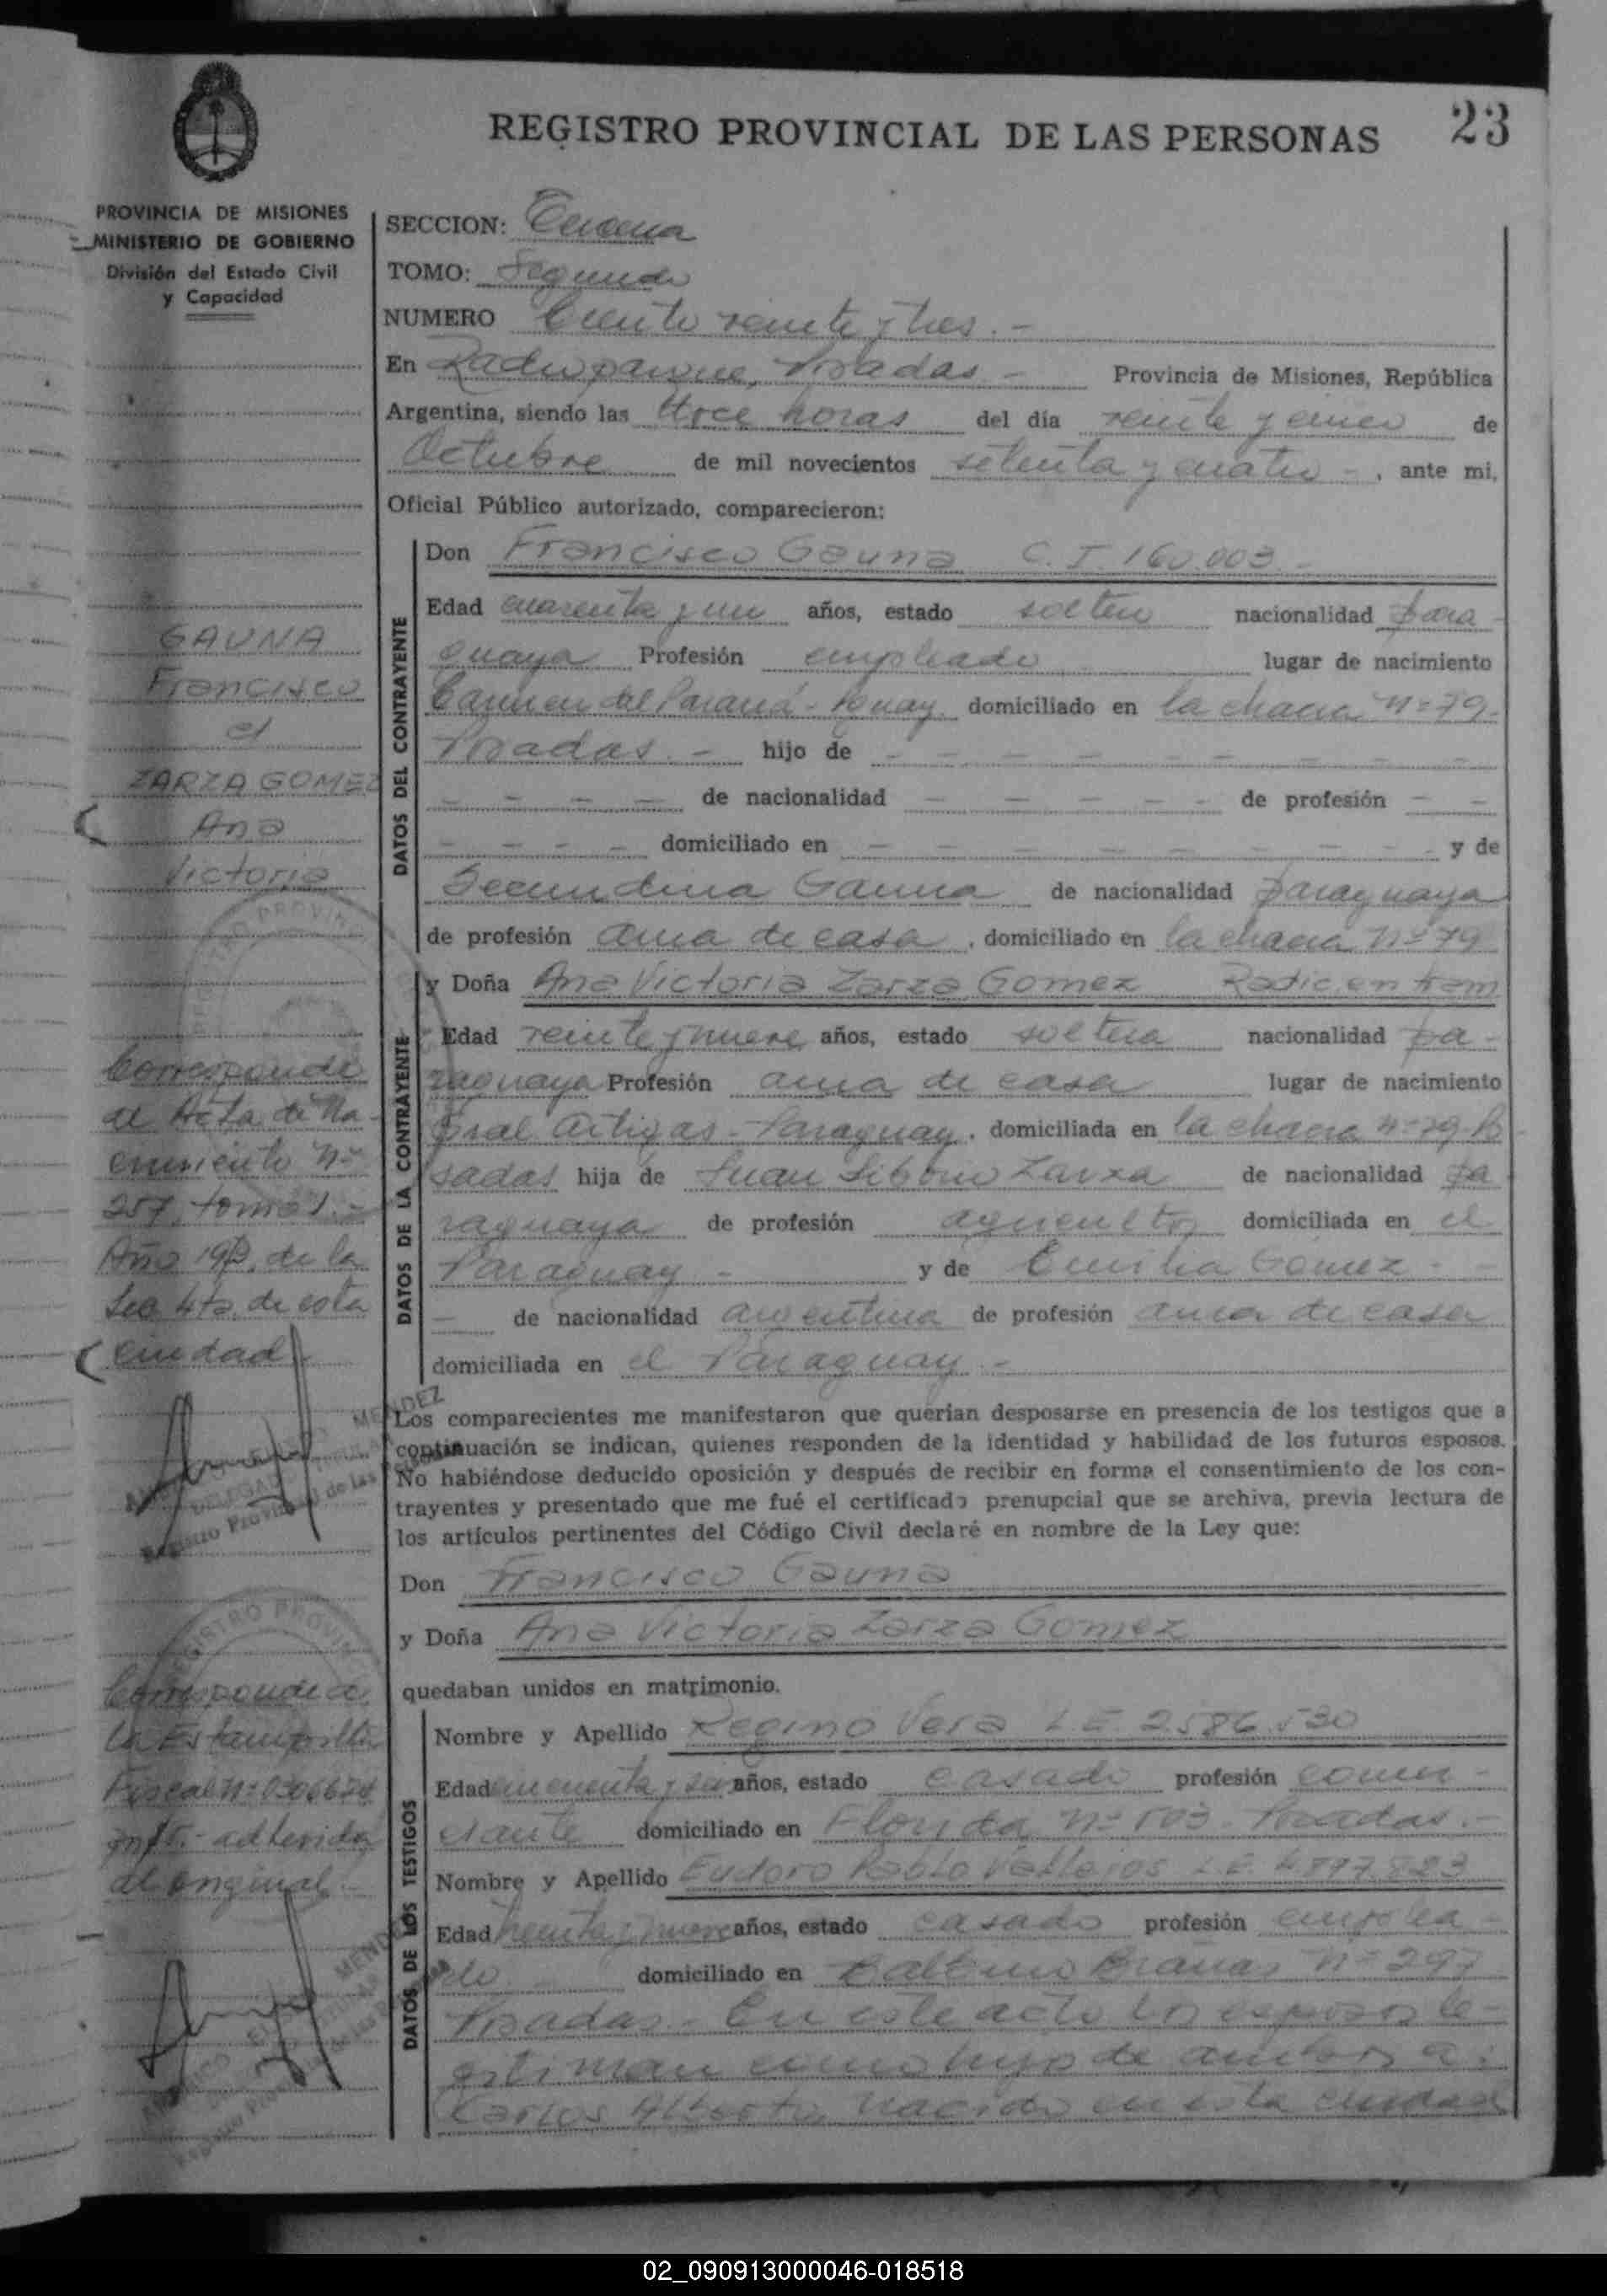 23
REGISTRO PROVINCIAL DE LAS PERSONAS
PROVINCIA DE MISIONES
MINISTERIO DE GOBIERNO
División del Estado Civil
y Capacidad
SECCION: Tercera
TOMO: Segundo
NUMERO Ciento veinte y tres.-
En Posadas.- Provincia de Misiones, República
Argentina, siendo las doce horas del día veinte y cinco de
Octubre de mil novecientos setenta y cuatro -, ante mi,
Oficial Público autorizado, comparecieron:
DATOS DEL CONTRAYENTE
Don Francisco Gauna C.I. 160.003.-
Edad cuarenta y un años, estado soltero nacionalidad para-
guaya Profesión empleado lugar de nacimiento
Carmen del Paraná - Pguay. domiciliado en la chacra nº 79-
Posadas.- hijo de - - - - - - -
- - - - de nacionalidad - - - - - de profesión - -
- - - - domiciliado en - - - - - - - - y de
Secundina Gauna de nacionalidad paraguaya
de profesión ama de casa, domiciliado en la chacra nº 79
DATOS DE LA CONTRAYENTE
y Doña Ana Victoria Zarza Gomez Radic. en tram
Edad veinte y nueve años, estado soltera nacionalidad pa-
raguaya Profesión ama de casa lugar de nacimiento
Gral Artigas - Paraguay. domiciliada en la chacra nº 79- Po
sadas hija de Juan Zarza de nacionalidad pa
raguaya de profesión agricultor domiciliada en el
Paraguay - y de Emilia Gomez - -
- de nacionalidad argentina de profesión ama de casa
domiciliada en el Paraguay.-
Los comparecientes me manifestaron que querían desposarse en presencia de los testigos que a
continuación se indican, quienes responden de la identidad y habilidad de los futuros esposos.
No habiéndose deducido oposición y después de recibir en forma el consentimiento de los con-
trayentes y presentado que me fué el certificado prenupcial que se archiva, previa lectura de
los artículos pertinentes del Código Civil declaré en nombre de la Ley que:
Don Francisco Gauna
y Doña Ana Victoria Zarza Gomez
quedaban unidos en matrimonio.
DATOS DE LOS TESTIGOS
Nombre y Apellido Regino Vera L.E. 2.586.530
Edad cincuenta y seis años, estado casado profesión comer-
ciante domiciliado en Florida nº 503- Posadas.-
Nombre y Apellido Eudoro Pablo Vallejos L.E. 4.897.823
Edad treinta y nueve años, estado casado profesión emplea-
do domiciliado en Balbino Brañas nº 297
Posadas.- En este acto los esposos le-
gitiman como hijo de ambos a:
Carlos Alberto nacido en esta ciudad
GAUNA
Francisco
c/
ZARZA GOMEZ
Ana
Victoria
Corresponde
al Acta de Na-
cimiento nº
257, tomo 1.-
Año de la
Sec 4ta. de esta
ciudad
Corresponde a
la Estampilla
Fiscal nº
adherida
al original.-
02_090913000046-018518